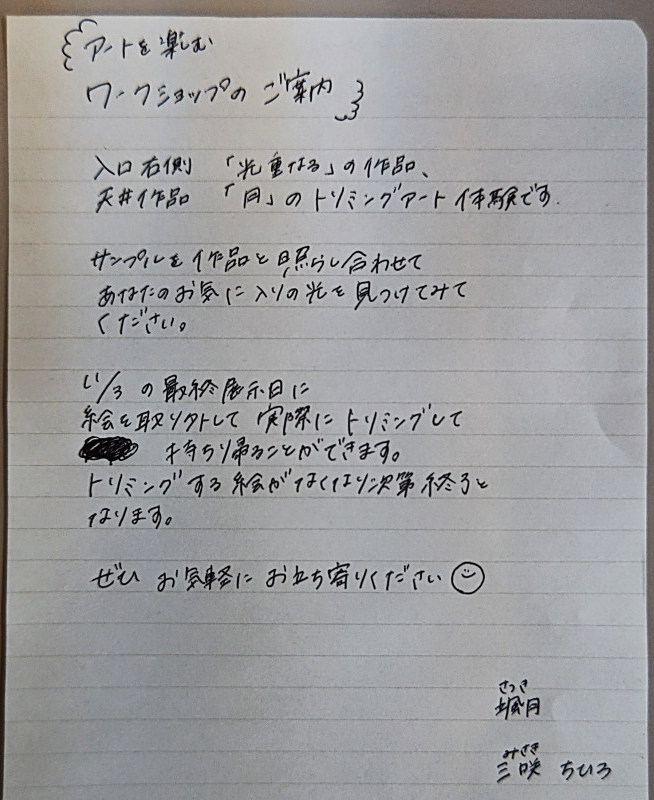 アートを楽しむ
ワークショップの ご案内
入口右側 「光重なる」の作品、
天井作品 「月」のトリミングアート体験です.
サンプルを作品と照らし合わせて
あなたのお気に入りの光を見つけてみて
ください。
11/3 の最終展示日に
絵を取り外して 実際にトリミングして
持ち帰ることができます。
トリミングする絵がなくなり次第終了と
なります。
ぜひ お気軽に お立ち寄りください
さつき
颯月
みさき
三咲 ちひろ